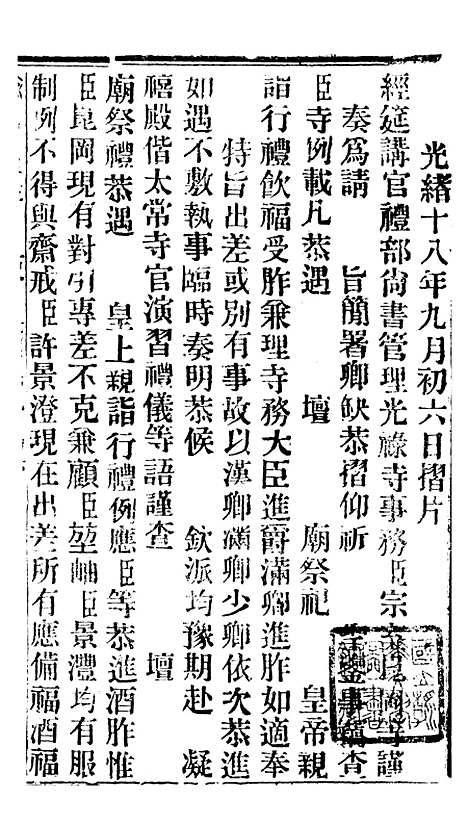 光緒十八年九月初六日摺片
經筵講官禮部尚書管理光祿寺事務臣宗室崑岡等謹
奏爲請 旨簡署卿缺恭摺仰祈
聖鑒事竊查
臣寺例載凡恭遇 壇 廟祭祀 皇帝親
詣行禮飲福受胙兼理寺務大臣進爵滿卿進胙如適奉
特旨出差或別有事故以漢卿滿卿少卿依次恭進
如遇不敷執事臨時奏明恭候 欽派均豫期赴 凝
禧殿偕太常寺官演習禮儀等語謹查 壇
廟祭禮恭遇 皇上親詣行禮例應臣等恭進酒胙惟
臣崑岡現有對引專差不克兼顧臣堃岫臣景灃均有服
制例不得與齋戒臣許景澄現在出差所有應備福酒福